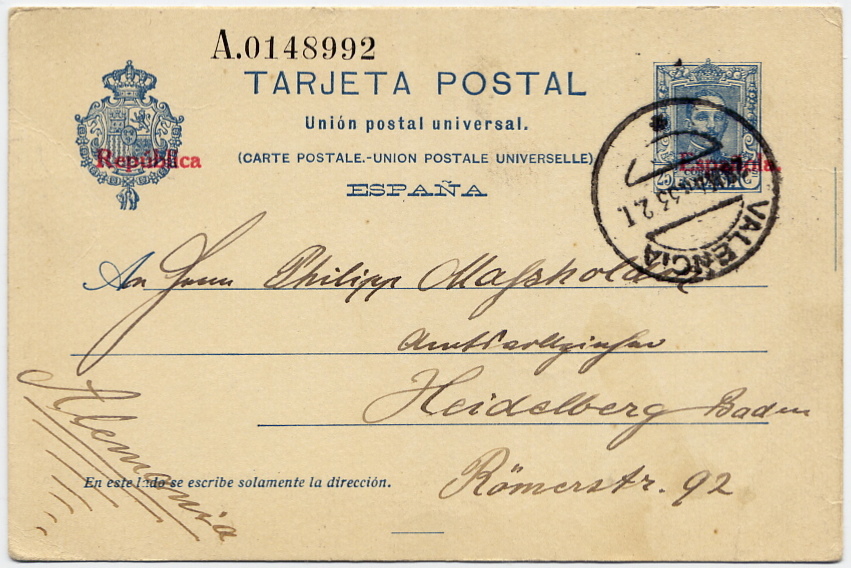 A.0148992
TARJETA POSTAL
Unión postal universal.
(CARTE POSTALE.-UNION POSTALE UNIVERSELLE)
ESPAÑA
República
Española.
VALENCIA
33 2.T.
An Herrn Philipp
Heidelberg Baden
Römerstr. 92
Alemania
En este lado se escribe solamente la dirección.